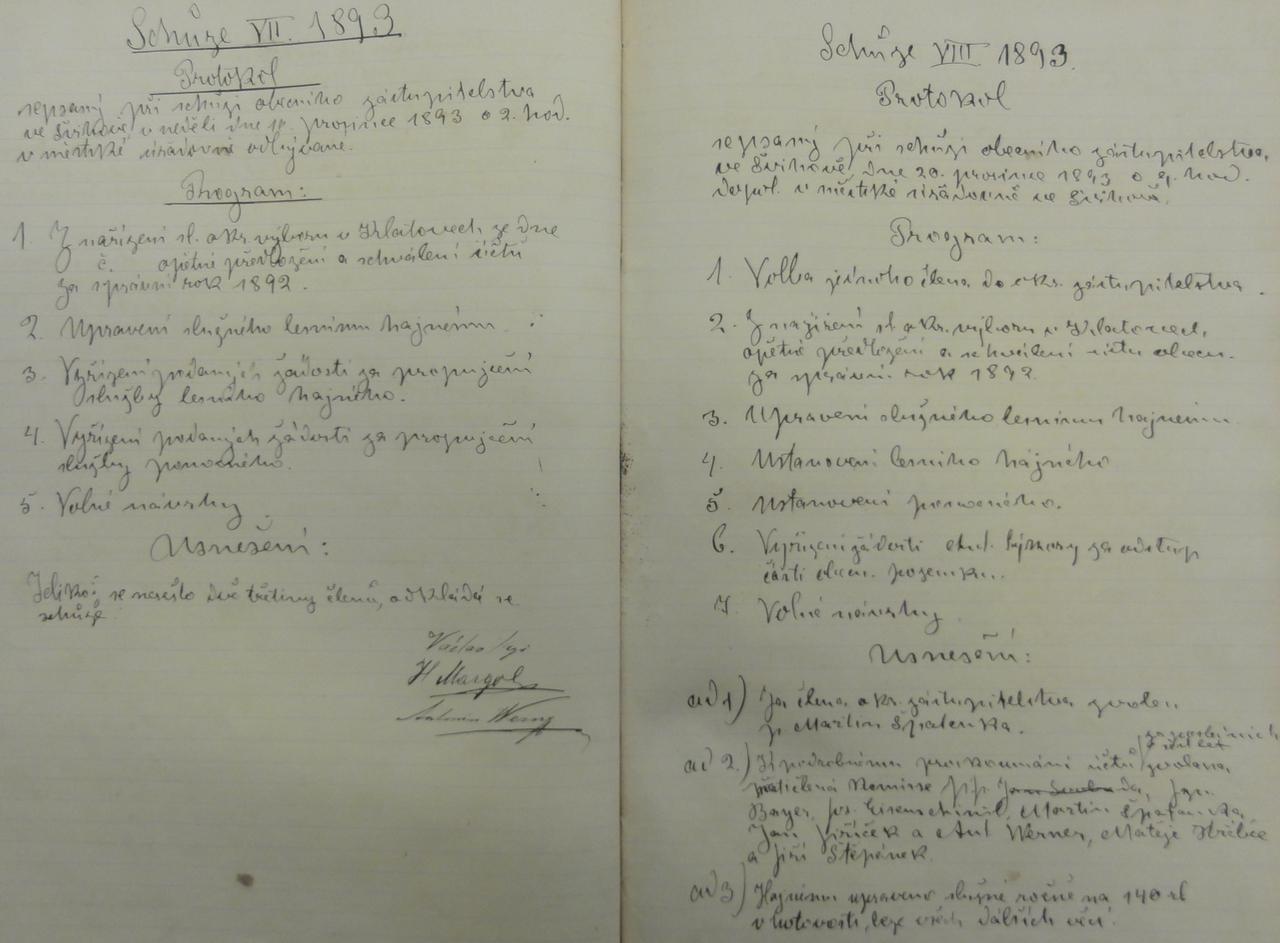 Schůze VII. 1893
Protokol
sepsaný při schůzi obecního zastupitelstva
ve Švihově v neděli dne prosince 1893 o 2. hod.
v městské úřadovně odbývané.
Program:
1. Z nařízení sl. okr. výboru v Klatovech ze dne
č. opětné předložení a schválení účtů
za správní rok 1892.
2. Upravení služného lesnímu hajnému
3. Vyřízení podaných žádostí za propujčení
služby lesního hajného.
4. Vyřízení podaných žádostí za propujčení
služby ponocného.
5. Volné návrhy
Usnešení:
Jelikož se nesešlo dvě třetiny členů, odkládá se
schůze.
Václav
H Margol
Antonín
Schůze VIII 1893.
Protokol
sepsaný při schůzi obecního zástupitelstva,
ve Švihově dne 20. prosince 1893 o hod.
dopol. v městské úřadovně ve Švihově.
Program:
1. Volba jednoho člena do okr. zástupitelstva.
2. Z nařízení sl. okr. výboru v Klatovech,
opětné předložení a schválení účtu obecn.
za správní rok 1892.
3. Upravení služného lesnímu hajnému
4. Ustanovení lesního hájného
5. Ustanovení ponocného.
6. Vyřízení žádosti za odstup
části obecn. pozemku.
7. Volné návrhy
Usnešení:
ad 1) Za člena okr. zástupitelstva zvolen
p. Martin Špalenka.
ad 2.) K podrobnému proskoumání účtů zvolena
komisse pp. Jan
Bayer, Jos. Eisenschiml, Martin Špalenka,
Jan Jiříček a Ant Werner, Matěje
a Jiří Štěpánek.
ad 3) Hajnému upraveno služné ročně na 140 zl
v hotovosti, beze všech dalších věcí.